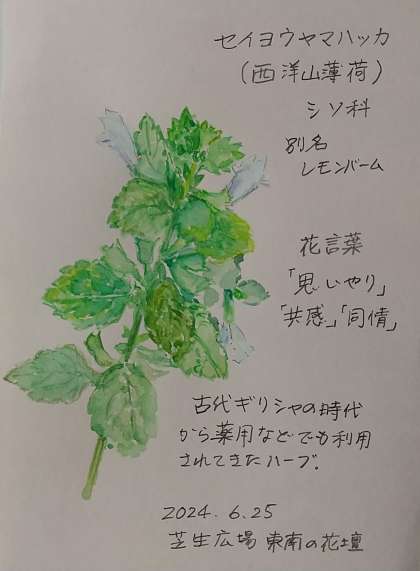 セイヨウヤマハッカ
(西洋山薄荷)
シソ科
別名
レモンバーム
花言葉
「思いやり」
「共感」「同情」
古代ギリシャの時代
から薬用などでも利用
されてきたハーブ.
2024.6.25
芝生広場 東南の花壇